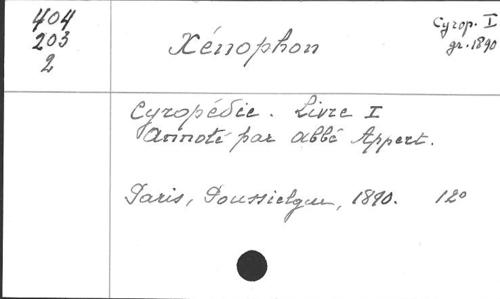 404
203
2
Xénophon
Cyrop. I
gr. 1890
Cyropédie. Livre I
Annoté par abbé Appert.
Paris, Poussielgue, 1890. 12º